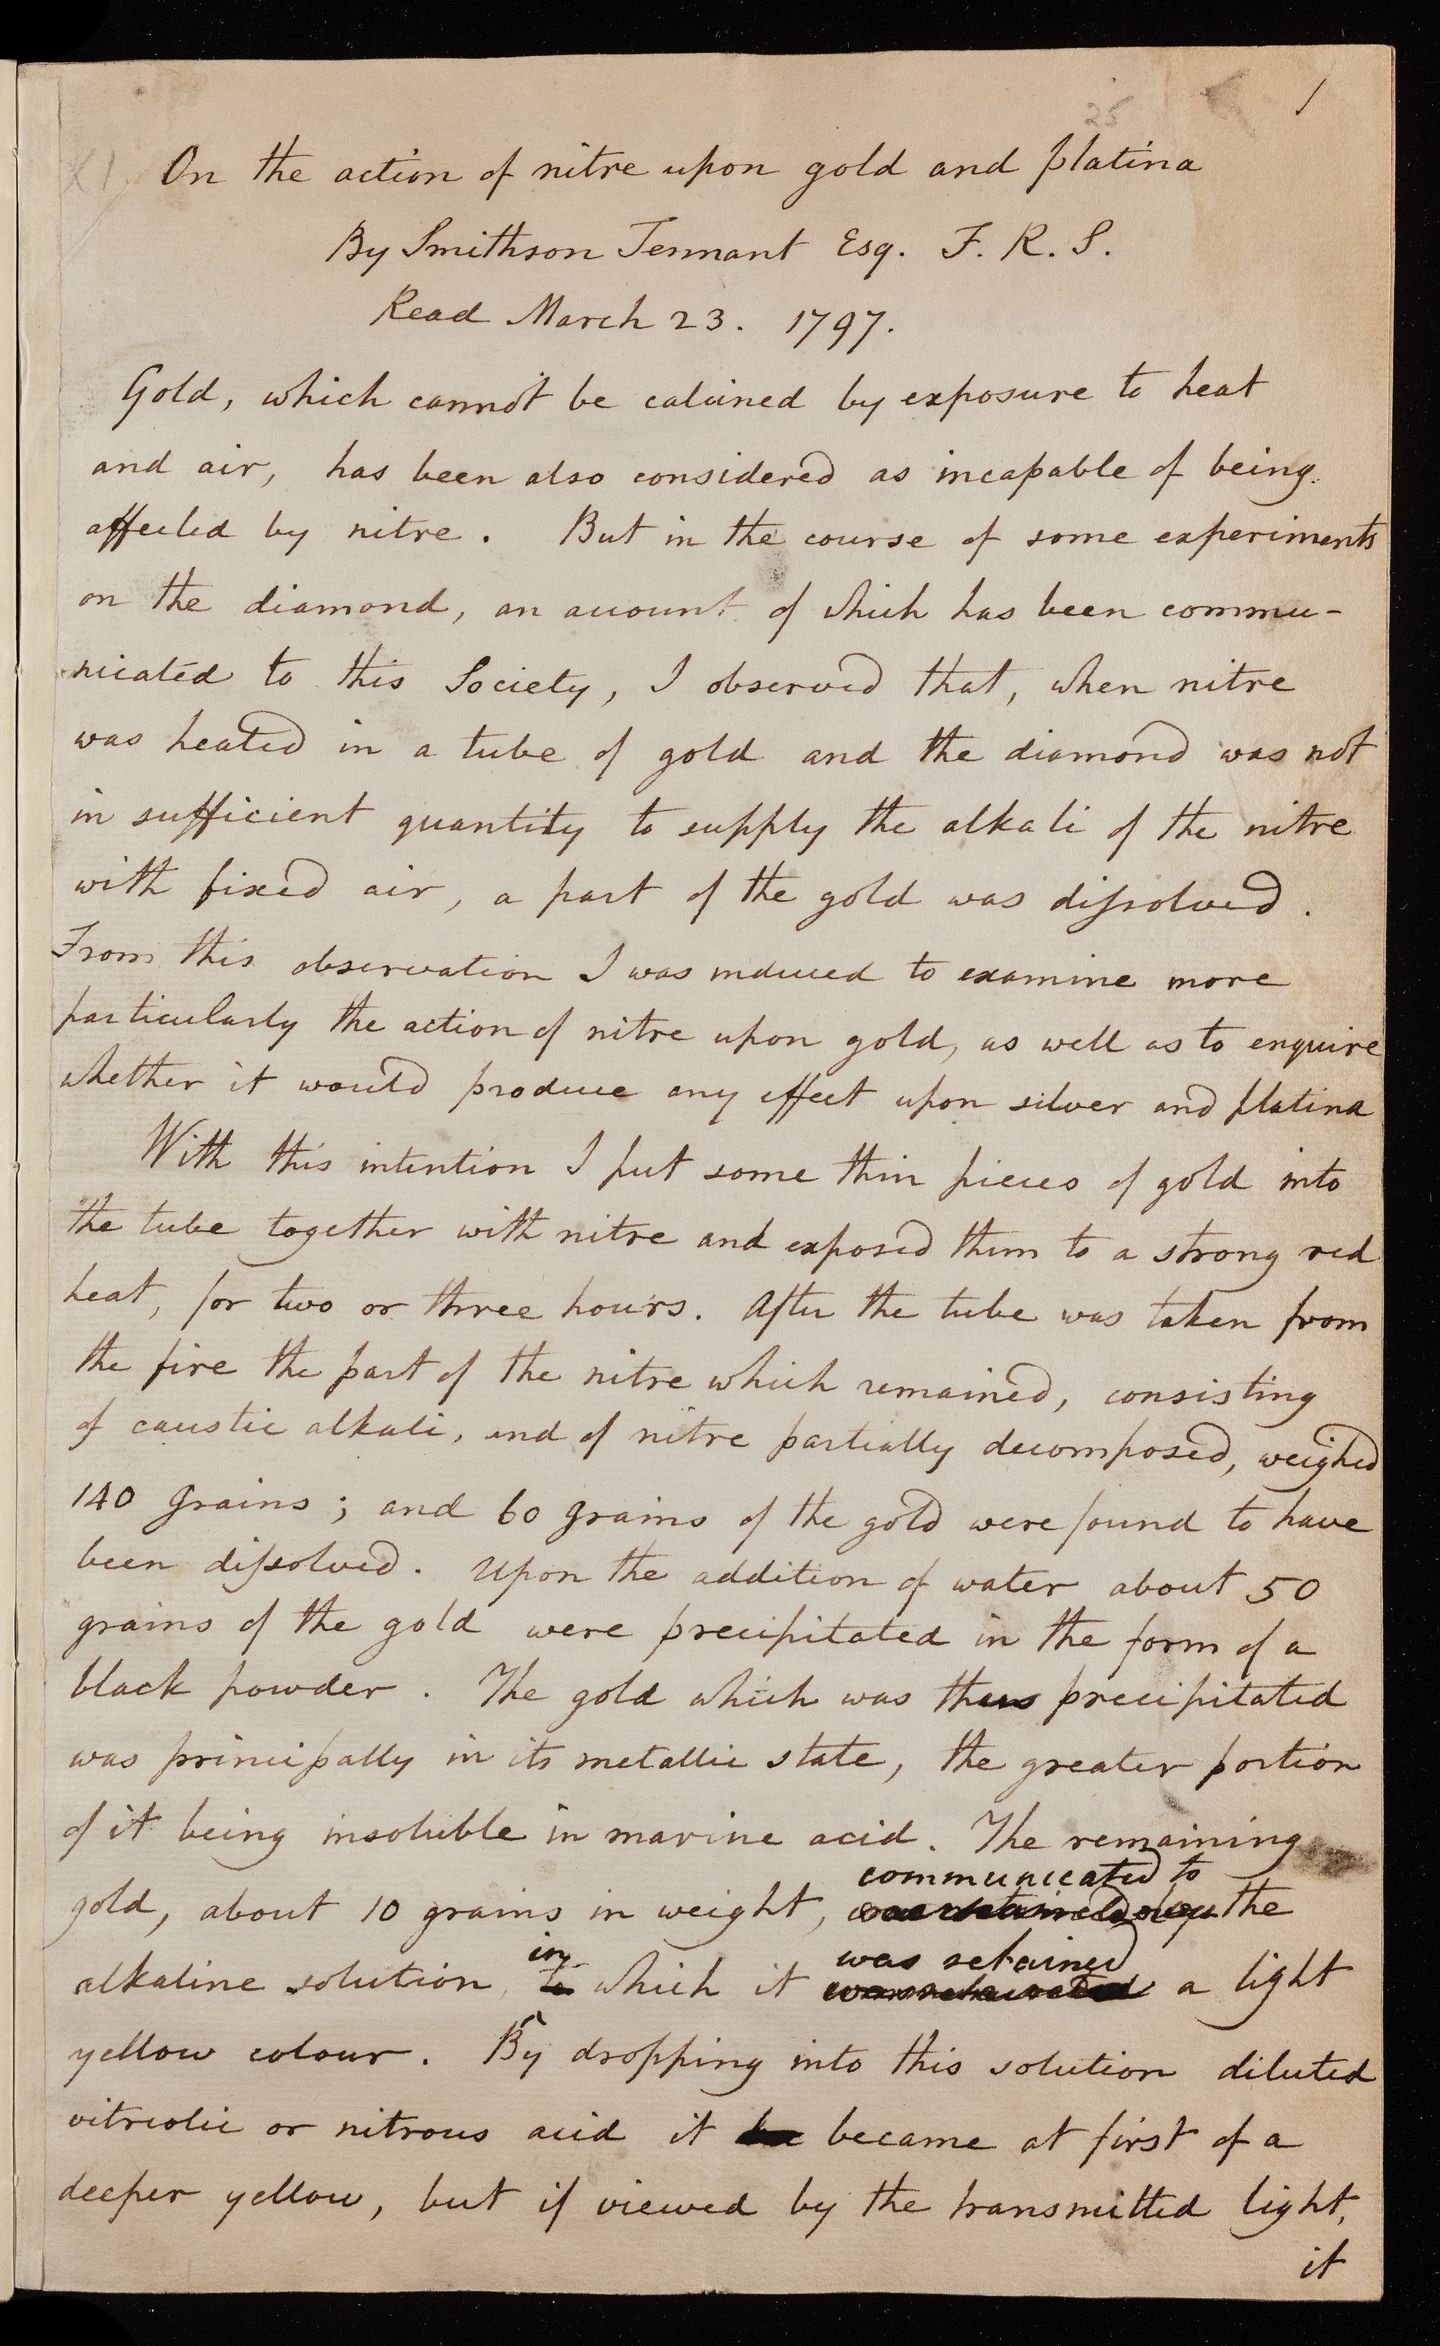 1
25
XI
On the action of nitre upon gold and platina
By Smithson Tennant Esq. F. R. S.
Read March 23. 1797.
Gold, which cannot be calcined by exposure to heat
and air, has been also considered as incapable of being
affected by nitre. But in the course of some experiments
on the diamond, an account of which has been commu-
nicated to this Society, I observed that, when nitre
was heated in a tube of gold and the diamond was not
in sufficient quantity to supply the alkali of the nitre
with fixed air, a part of the gold was dissolved.
From this observation I was induced to examine more
particularly the action of nitre upon gold, as well as to enquire
whether it would produce any effect upon silver and platina
With this intention I put some thin pieces of gold into
the tube together with nitre and exposed them to a strong red
heat, for two or three hours. After the tube was taken from
the fire the part of the nitre which remained, consisting
of caustic alkali, and of nitre partially decomposed, weighed
140 grains; and 60 grains of the gold were found to have
been dissolved. Upon the addition of water about 50
grains of the gold were precipitated in the form of a
black powder. The gold which was thus precipitated
was principally in its metallic state, the greater portion
of it being insoluble in marine acid. The remaining
communicated to
gold, about 10 grains in weight, the
in was retained
alkaline solution, to which it a light
yellow colour. By dropping into this solution diluted
vitriolic or nitrous acid it became at first of a
deeper yellow, but if viewed by the transmitted light,
it